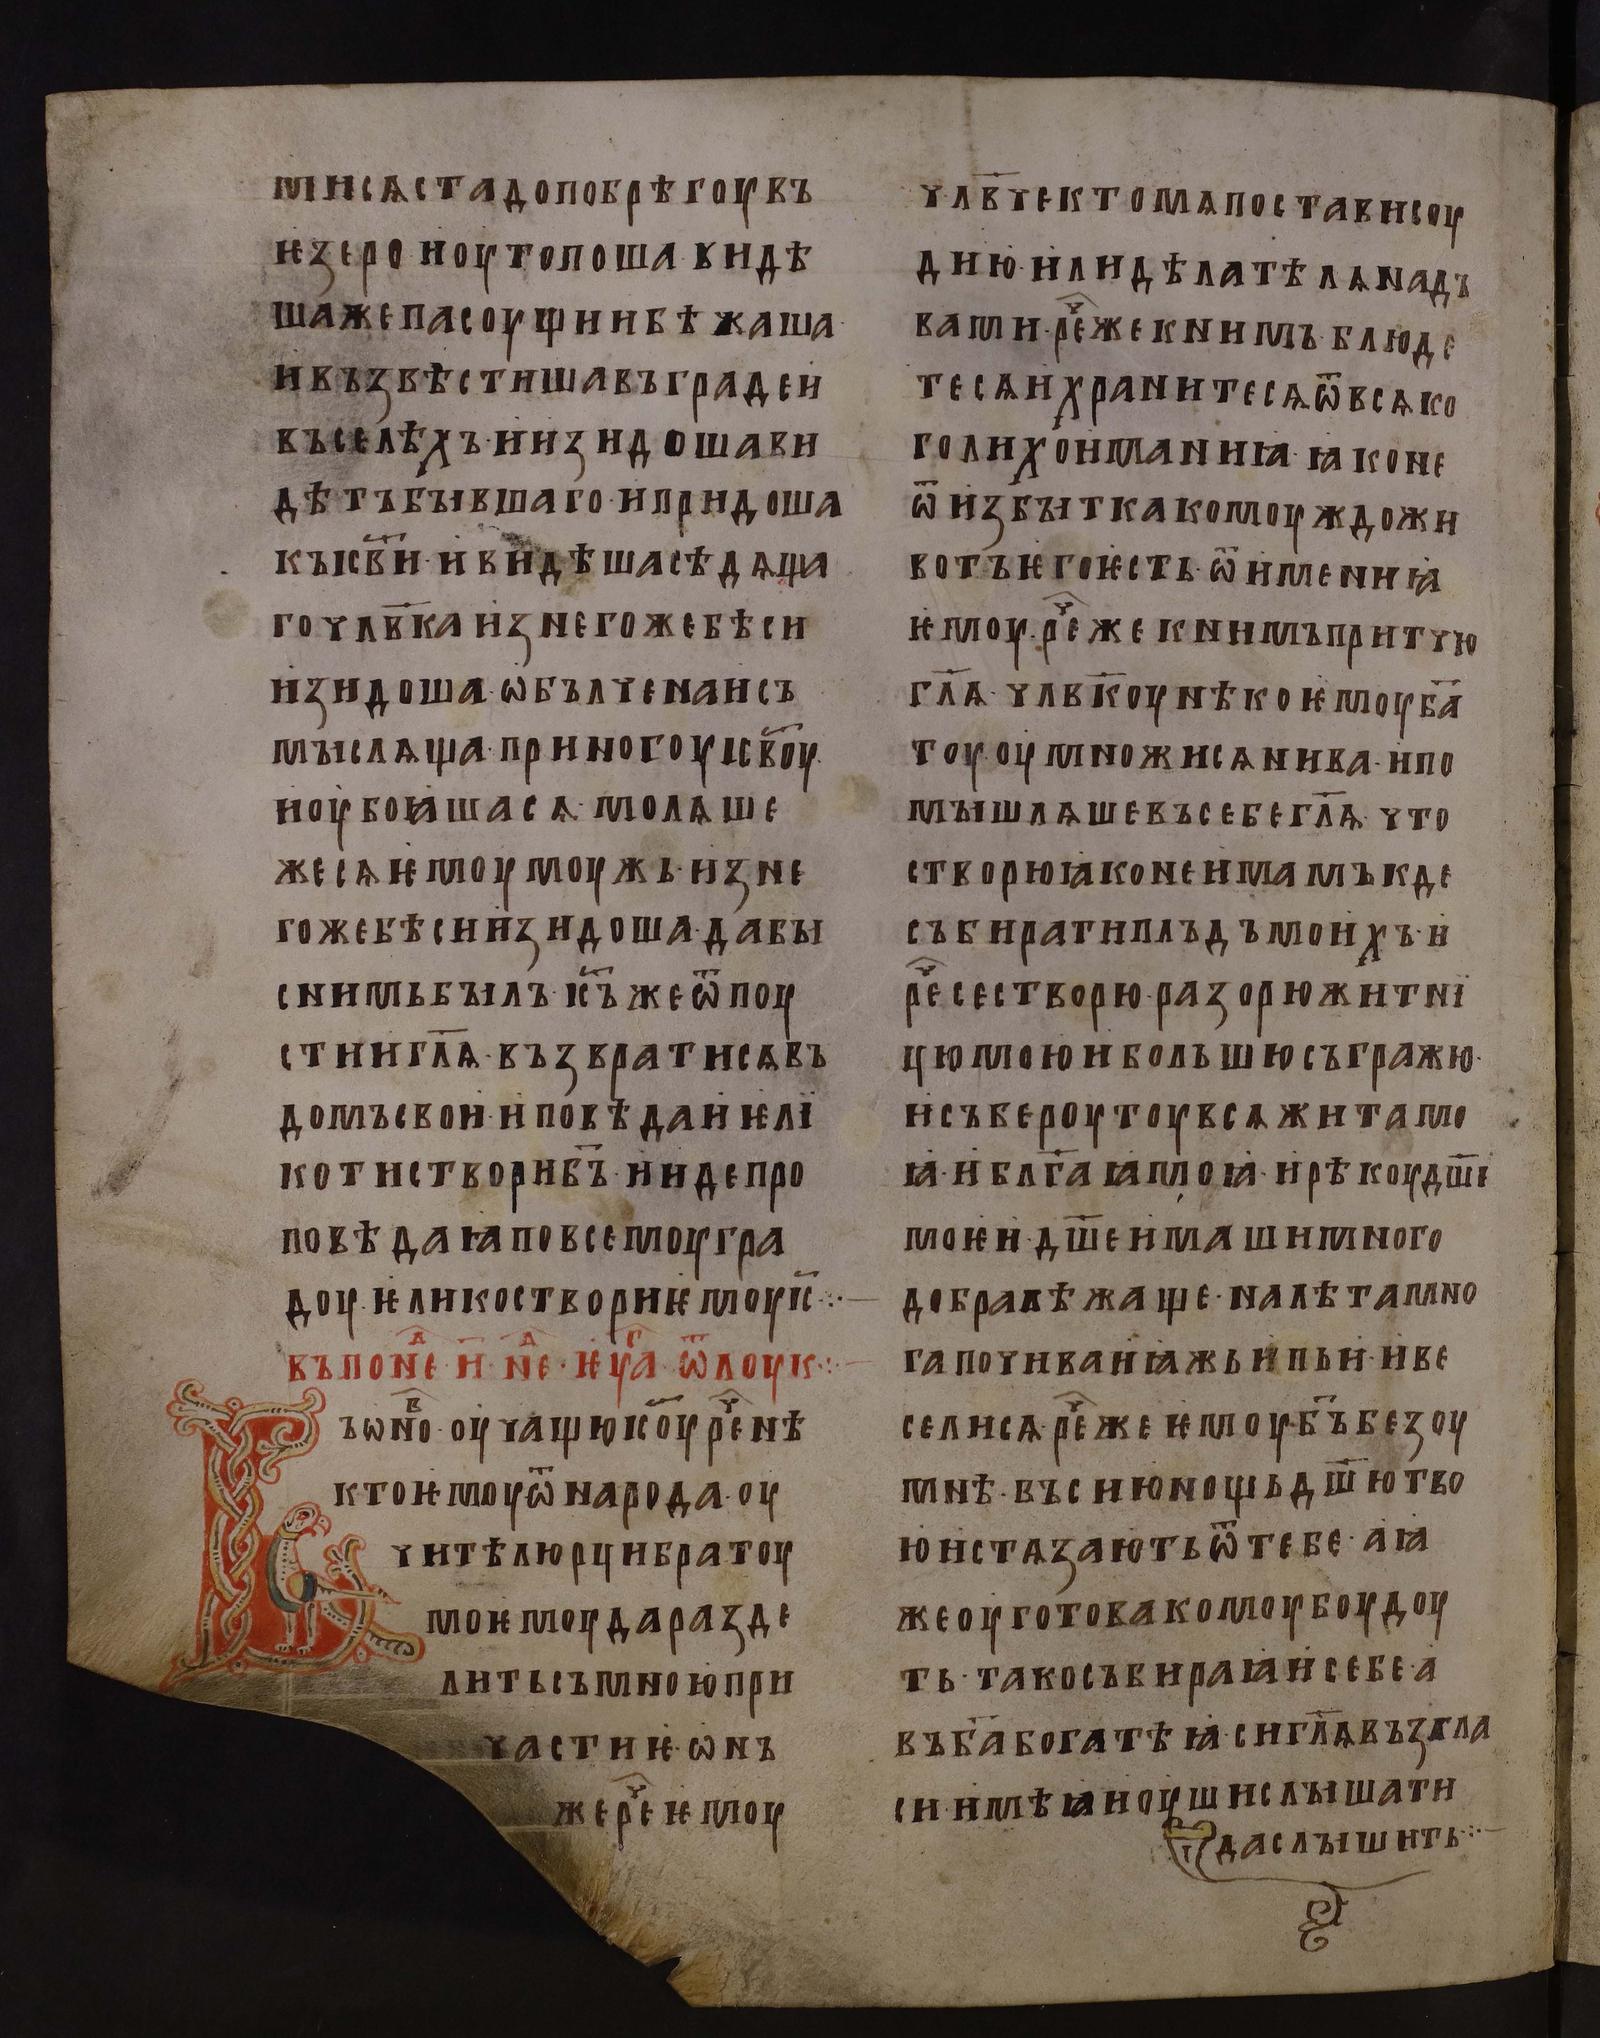 мисѧстадопобрѣгоувъ
ѥзеро·ноутопоша·видѣ
шажепасоущиибѣжаша·
ивъзвѣстишавъградеи
въселѣхъ·иизидошави
дѣтъбꙑвшаго·ипридоша
къісв҃и·ивидѣшасѣдѧща
гочл҃вкаизнегожебѣси
изидоша·ѡбълченаисъ
мꙑслѧща·приногоуісв҃оу·
ноубоꙗшасѧ·молѧше
жесѧѥмоумоужь·изне
гожебѣсиизидоша·дабꙑ
снимьбꙑлъ·іс҃ъжеѿпоу
стиигл҃ѧ·възвратисѧвъ
домъсвои·иповѣдаиѥлї
котистворибг҃ъ·иидепро
повѣдаꙗповсемоугра
доу·ѥликоствориѥмоуіс҃·:·—
въпонеⷣ·и҃·неⷣ·ѥуⷢ҇а·ѿлоук·:·—
ъѡноⷡ·оучащюіс҃оу·реⷱнѣ
ктоѥмоуѿнарода·оу
чителюрцибратоу
моѥмоударазде
литьсъмноюпри
частиѥ·ѡнъ
жереⷱѥмоу
чл҃вчектомѧпостависоу
дию·илидѣлателѧнадъ
вами·реⷱжекнимъ·блюде
тесѧихранитесѧѿвсѧко
голихоиманиꙗ·ꙗконе
ѿизбꙑткакомоуждожи
вотъѥгоѥсть·ѿимениꙗ
ѥмоу·реⷱжекнимъпритчю
гл҃ѧ·члв҃коунѣкоѥмоубг҃а
тоу·оумножисѧнива·ипо
мꙑшлѧшевъсебегл҃ѧ·что
створюꙗконеимамъкде
събиратиплъдъмоихъ·и
реⷱсестворю·разорюжитнї
цюмоюибольшюсъгражю·
исъбероутоувсѧжитамо
ꙗ·иблг҃аꙗмоꙗ·ирѣкоудш҃і
моѥи·дш҃еимашимного
добралѣжаще·налѣтамно
гапочиваꙗжьипьи·иве
селисѧ·реⷱжеѥмоубг҃ъбезоу
мнѣ·въсиюнощьдш҃ютво
юистѧзаютьѿтебе·аꙗ
жеоуготовакомоубоудоу
ть·такосъбираꙗисебеа
въбг҃абогатѣꙗ·сигл҃ѧвъзгла
си·имѣꙗиоушислꙑшати
даслꙑшить·:·—